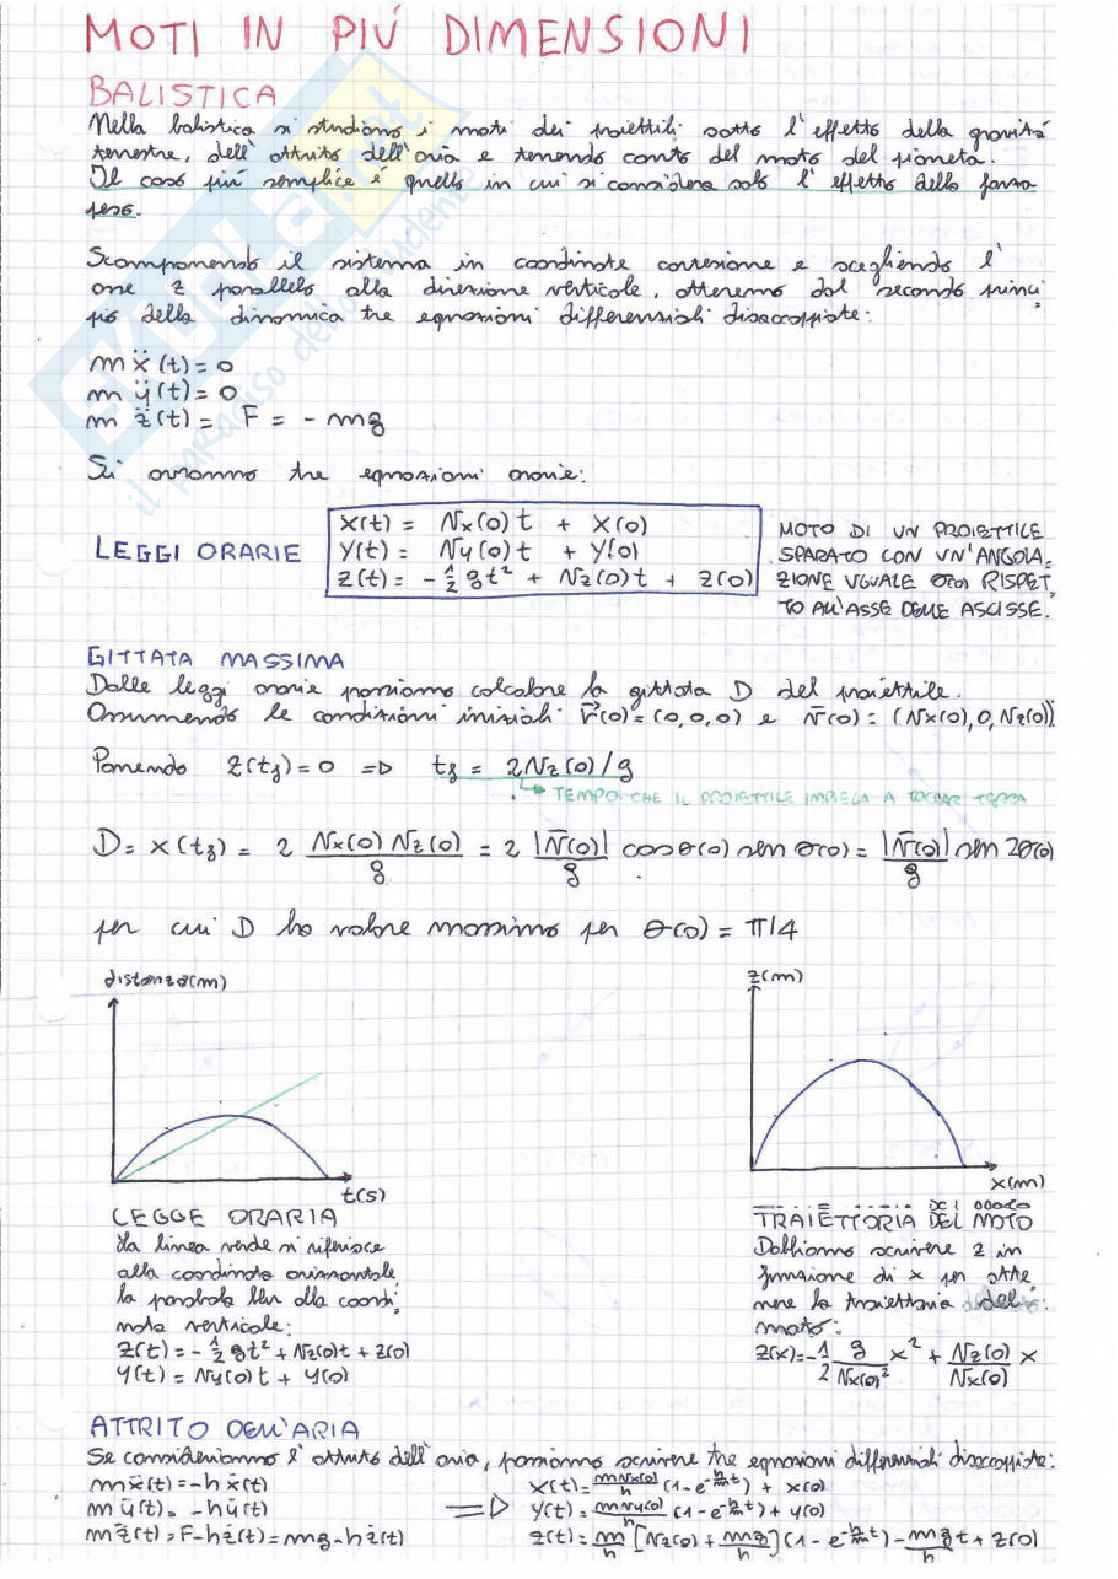 MOTI IN PIÚ DIMENSIONI
BALISTICA
Nella balistica si studiano i moti dei proiettili sotto l'effetto della gravitá
terrestre, dell'attrito dell'aria e tenendo conto del moto del pianeta.
Il caso piú semplice é quello in cui si considera solo l'effetto della forza
peso.
Scomponendo il sistema in coordinate cartesiane e scegliendo l'
asse z parallelo alla direzione verticale, otteremo dal secondo princi
pio della dinamica tre equazioni differenziali disaccoppiate:
m ẍ(t) = 0
m ÿ(t) = 0
m z̈(t) = F = - mg
Si avranno tre equazioni orarie:
LEGGI ORARIE
x(t) = Vx(0)t + x(0)
y(t) = Vy(0)t + y(0)
z(t) = - 1/2 gt² + Vz(0)t + z(0)
MOTO DI UN PROIETTILE
SPARATO CON UN'ANGOLA-
ZIONE UGUALE θ(0) RISPET
TO ALL'ASSE DELLE ASCISSE.
GITTATA MASSIMA
Dalle leggi orarie possiamo calcolare la gittata D del proiettile.
Assumendo le condizioni iniziali r̄(0) = (0,0,0) e v̄(0) = (Vx(0), 0, Vz(0))
Ponendo z(tf) = 0 => tf = 2Vz(0)/g
TEMPO CHE IL PROIETTILE IMPIEGA A TOCCAR TERRA
D = x(tf) = 2 Vx(0) Vz(0)/g = 2 |v̄(0)|/g cosθ(0) sen θ(0) = |v̄(0)|/g sen 2θ(0)
per cui D ha valore massimo per θ(0) = π/4
distanza(m)
t(s)
z(m)
x(m)
LEGGE ORARIA
La linea verde si riferisce
alla coordinata orizzontale,
la parabola blu alla coordi
nata verticale:
z(t) = - 1/2 gt² + Vz(0)t + z(0)
y(t) = Vy(0)t + y(0)
TRAIETTORIA DEL MOTO
Dobbiamo scrivere z in
funzione di x per otte
nere la traiettoria del
moto:
z(x) = - 1/2 g/Vx(0)² x² + Vz(0)/Vx(0) x
ATTRITO DELL'ARIA
Se consideriamo l'attrito dell'aria, possiamo scrivere tre equazioni differenziali disaccoppiate:
mẍ(t) = -hẋ(t)
mÿ(t) = -hẏ(t)
mz̈(t) = F-hż(t) = mg-hż(t)
=>
x(t) = mVx(0)/h (1-e^-h/m t) + x(0)
y(t) = mVy(0)/h (1-e^-h/m t) + y(0)
z(t) = m/h [Vz(0) + mg/h] (1-e^-h/m t) - mg/h t + z(0)
il paradiso dello studente